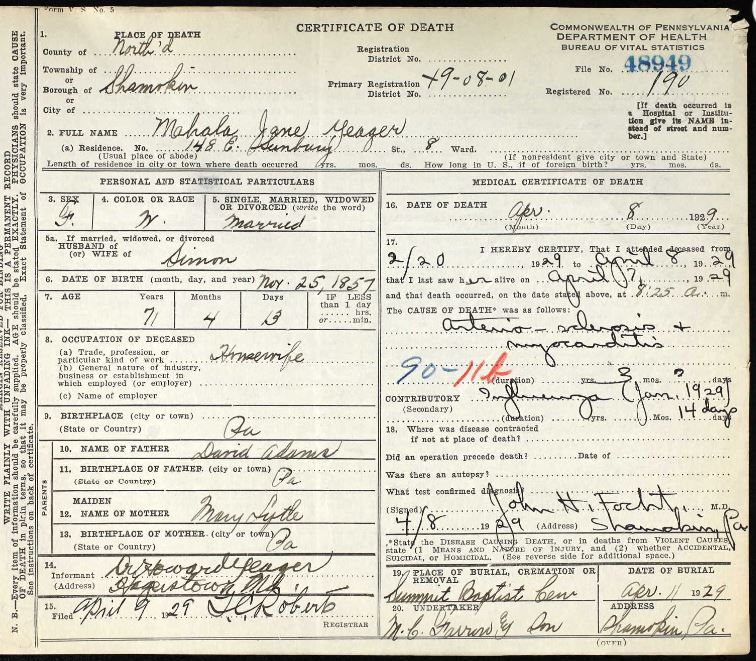 Form V. S. No. 5
CERTIFICATE OF DEATH
COMMONWEALTH OF PENNSYLVANIA
DEPARTMENT OF HEALTH
BUREAU OF VITAL STATISTICS
1. PLACE OF DEATH
County of North'd
Township of
or
Borough of Shamokin
or
City of
Registration
District No.
Primary Registration
District No. 49-08-01
File No. 48949
Registered No. 190
[If death occurred in
a Hospital or Institu-
tion give its NAME in-
stead of street and num-
ber.]
2. FULL NAME Mahala Jane Yeager
(a) Residence. No. 148 E. Sunbury St., 8 Ward.
(Usual place of abode) (If nonresident give city or town and State)
Length of residence in city or town where death occurred yrs. mos. ds. How long in U. S., if of foreign birth? yrs. mos. ds.
PERSONAL AND STATISTICAL PARTICULARS
3. SEX F.
4. COLOR OR RACE W.
5. SINGLE, MARRIED, WIDOWED
OR DIVORCED (write the word)
Married
5a. If married, widowed, or divorced
HUSBAND of
(or) WIFE of Simon
6. DATE OF BIRTH (month, day, and year) Nov. 25, 1857
7. AGE Years Months Days IF LESS
than 1 day
hrs.
or min.
71 4 13
8. OCCUPATION OF DECEASED
(a) Trade, profession, or
particular kind of work Housewife
(b) General nature of industry,
business or establishment in
which employed (or employer)
(c) Name of employer
9. BIRTHPLACE (city or town)
(State or Country) Pa
PARENTS
10. NAME OF FATHER David Adams
11. BIRTHPLACE OF FATHER (city or town)
(State or Country) Pa
MAIDEN
12. NAME OF MOTHER Mary Lytle
13. BIRTHPLACE OF MOTHER (city or town)
(State or Country) Pa
14. Informant Howard Yeager
(Address) Hagerstown, Md.
15. Filed April 9 1929
REGISTRAR
MEDICAL CERTIFICATE OF DEATH
16. DATE OF DEATH Apr. 8 1929
(Month) (Day) (Year)
17. I HEREBY CERTIFY, That I attended deceased from
2/20 1929 to April 8 1929
that I last saw her alive on April 7, 1929
and that death occurred, on the date stated above, at 8:25 a. m.
The CAUSE OF DEATH* was as follows:
Arterio-sclerosis +
myocarditis
90-11b
(duration) yrs. 3 mos. ? days
CONTRIBUTORY Influenza (Jan. 1929)
(Secondary) (duration) yrs. Mos. 14 days
18. Where was disease contracted
if not at place of death?
Did an operation precede death? Date of
Was there an autopsy?
What test confirmed diagnosis?
(Signed) John H. Focht, M. D.
4/8 1929 (Address) Shamokin, Pa
*State the DISEASE CAUSING DEATH, or in deaths from VIOLENT CAUSES
state (1 MEANS AND NATURE OF INJURY, and (2) whether ACCIDENTAL,
SUICIDAL, or HOMICIDAL. (See reverse side for additional space.)
19. PLACE OF BURIAL, CREMATION OR
REMOVAL
Summit Baptist Cem
DATE OF BURIAL
Apr. 11 1929
20. UNDERTAKER
M. C. Farrow & Son
ADDRESS
Shamokin, Pa.
(OVER)